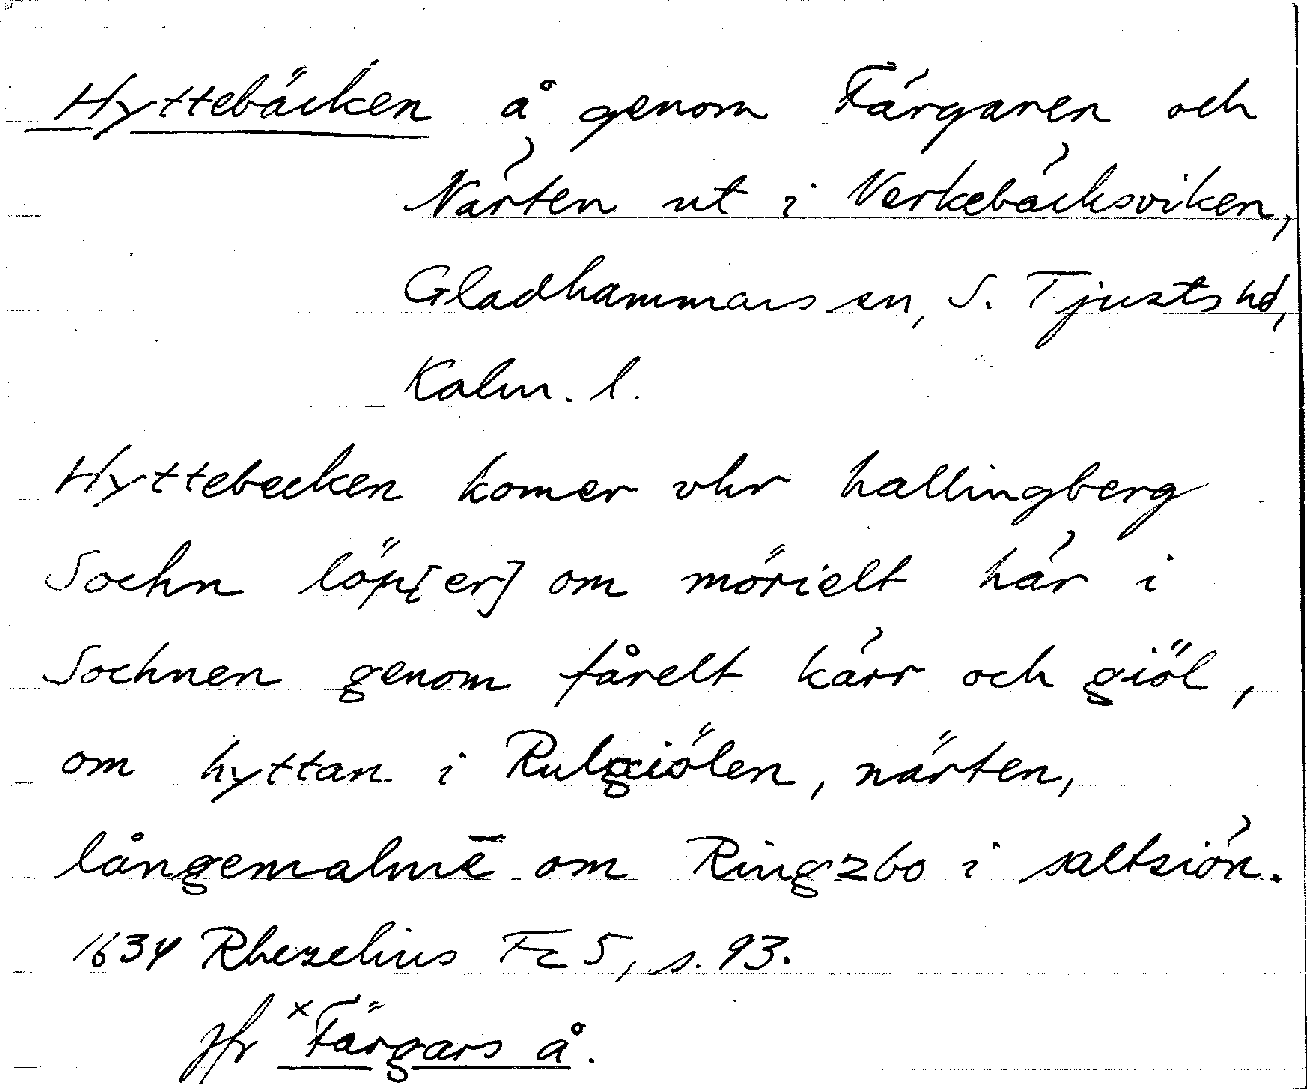 Hyttebäcken å genom Färgaren och
Närten ut i Verkebäcksviken,
Gladhammars sn, S. Tjusts hd,
Kalm. l.
Hyttebecken komer vhr hallingberg
Sochn löp[er] om mörielt här i
Sochnen genom fårelt kärr och giöl,
om hyttan i Rulgiölen, närten,
långemalmē om Ringzbo i saltsiön.
1634 Rhezelius Fc 5, s. 93.
Jfr ˣFärgars å.